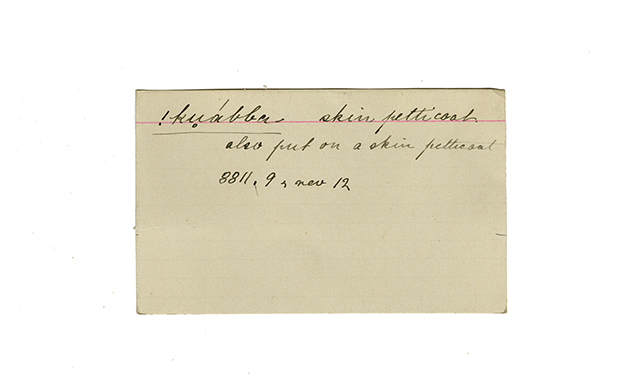 !kụábba skin petticoat
also put on a skin petticoat
3811. 9 & rev 12